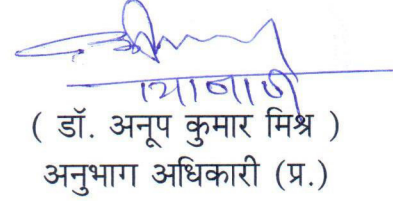 ( डॉ. अनूप कुमार मिश्र )
अनुभाग अधिकारी (प्र.)